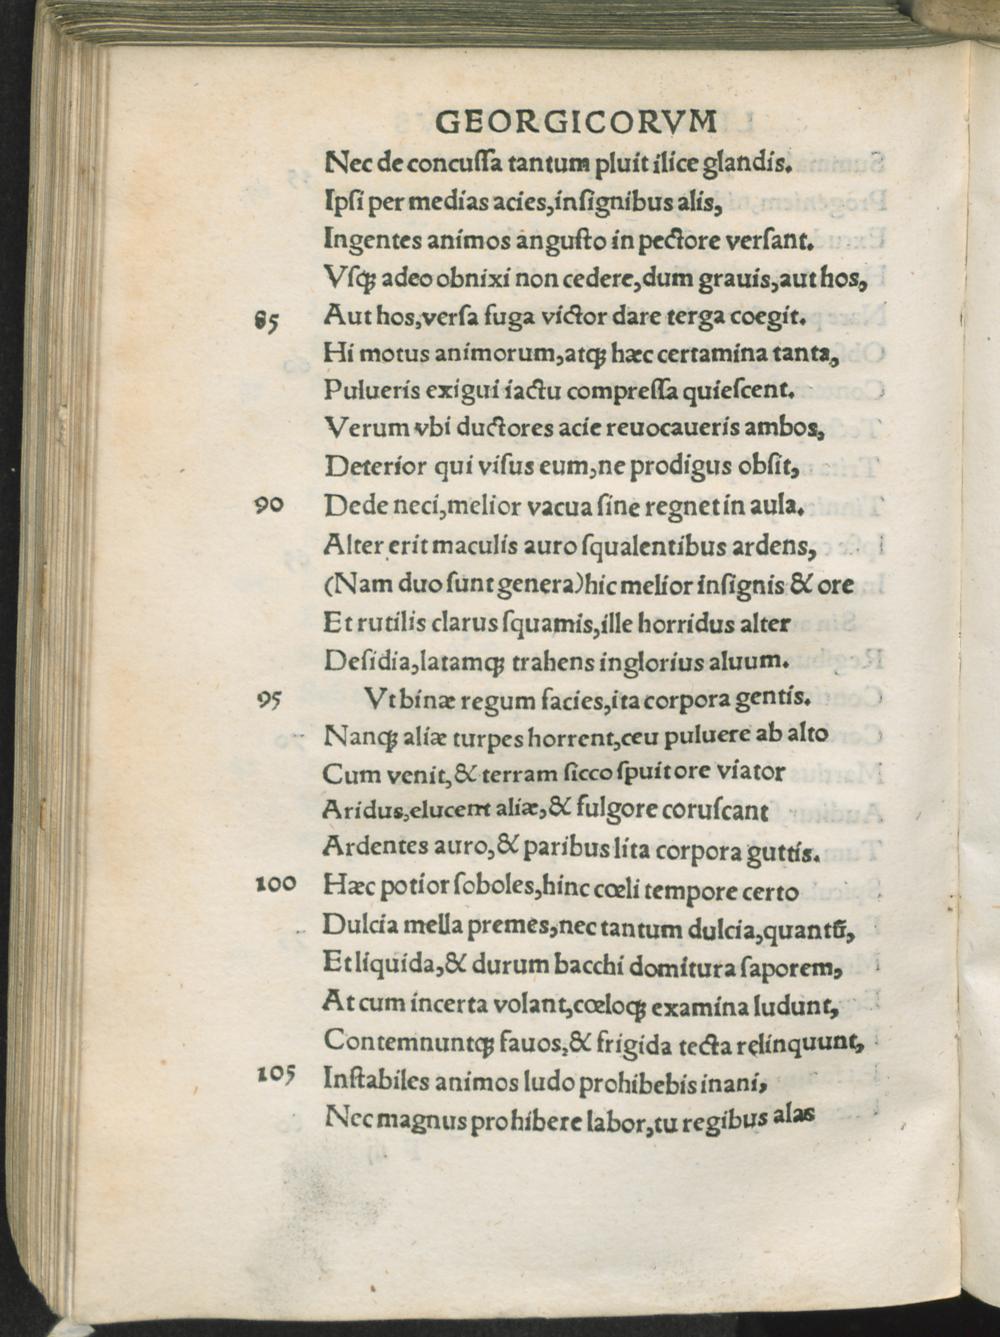 GEORGICORVM
Nec de concuſſa tantum pluit ilice glandis.
Ipſi per medias acies,inſignibus alis,
Ingentes animos anguſto in pectore verſant.
Vſqꝫ adeo obnixi non cedere,dum grauis,aut hos,
85 Aut hos,verſa fuga victor dare terga coegit.
Hi motus animorum,atqꝫ hæc certamina tanta,
Pulueris exigui iactu compreſſa quieſcent.
Verum vbi ductores acie reuocaueris ambos,
Deterior qui viſus eum,ne prodigus obſit,
90 Dede neci,melior vacua ſine regnet in aula.
Alter erit maculis auro ſqualentibus ardens,
(Nam duo ſunt genera)hic melior inſignis & ore
Et rutilis clarus ſquamis,ille horridus alter
Deſidia,latamqꝫ trahens inglorius aluum.
95 Vt binæ regum facies,ita corpora gentis.
Nanqꝫ aliæ turpes horrent,ceu puluere ab alto
Cum venit,& terram ſicco ſpuit ore viator
Aridus,elucent aliæ,& fulgore coruſcant
Ardentes auro,& paribus lita corpora guttis.
100 Hæc potior ſoboles,hinc cœli tempore certo
Dulcia mella premes,nec tantum dulcia,quantū,
Et liquida,& durum bacchi domitura ſaporem,
At cum incerta volant,cœloqꝫ examina ludunt,
Contemnuntqꝫ fauos,& frigida tecta relinquunt,
105 Inſtabiles animos ludo prohibebis inani,
Nec magnus prohibere labor,tu regibus alas